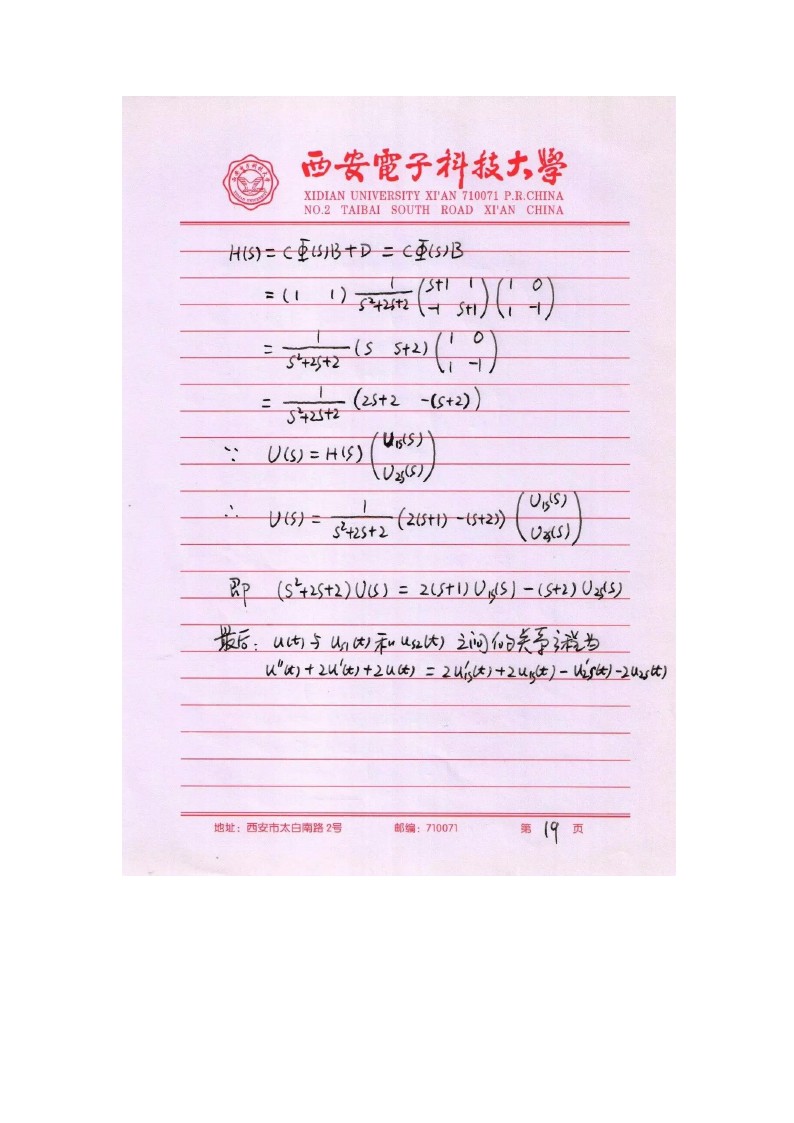 西安電子科技大學
XIDIAN UNIVERSITY XI'AN 710071 P.R.CHINA
NO.2 TAIBAI SOUTH ROAD XI'AN CHINA
H(s) = CΦ(s)B + D = CΦ(s)B
= (1 1) 1/(s²+2s+2) (s+1 1; -1 s+1) (1 0; 1 -1)
= 1/(s²+2s+2) (s s+2) (1 0; 1 -1)
= 1/(s²+2s+2) (2s+2 -(s+2))
∵ U(s) = H(s) (U₁ₛ(s); U₂ₛ(s))
∴ U(s) = 1/(s²+2s+2) (2(s+1) -(s+2)) (U₁ₛ(s); U₂ₛ(s))
即 (s²+2s+2)U(s) = 2(s+1)U₁ₛ(s) - (s+2)U₂ₛ(s)
最后: u(t)与 uₛ₁(t)和 uₛ₂(t) 之间的关系方程为
u''(t) + 2u'(t) + 2u(t) = 2u'₁ₛ(t) + 2u₁ₛ(t) - u'₂ₛ(t) - 2u₂ₛ(t)
地址: 西安市太白南路2号 邮编: 710071 第 19 页